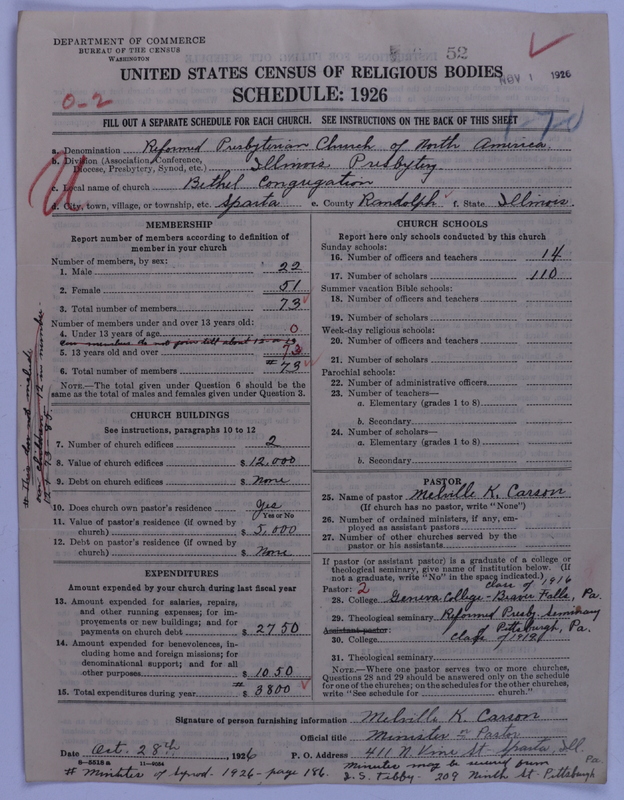 DEPARTMENT OF COMMERCE
BUREAU OF THE CENSUS
WASHINGTON
52
NOV 1 1926
UNITED STATES CENSUS OF RELIGIOUS BODIES
SCHEDULE: 1926
0-2
170
FILL OUT A SEPARATE SCHEDULE FOR EACH CHURCH. SEE INSTRUCTIONS ON THE BACK OF THIS SHEET
a. Denomination Reformed Presbyterian Church of North America
b. Division (Association, Conference, Diocese, Presbytery, Synod, etc.) Illinois Presbytery
c. Local name of church Bethel Congregation
d. City, town, village, or township, etc. Sparta e. County Randolph f. State Illinois.
MEMBERSHIP
Report number of members according to definition of
member in your church
Number of members, by sex:
1. Male 22
2. Female 51
3. Total number of members 73
Number of members under and over 13 years old:
4. Under 13 years of age 0
Our members do not join till about 12 or 13
5. 13 years old and over 73
6. Total number of members # 73
NOTE.—The total given under Question 6 should be
the same as the total of males and females given under Question 3.
# This does not include
our children - 12 in number
12 + 73 - 85.
CHURCH BUILDINGS
See instructions, paragraphs 10 to 12
7. Number of church edifices 2
8. Value of church edifices $ 12,000
9. Debt on church edifices $ None
10. Does church own pastor's residence Yes
(Yes or No)
11. Value of pastor's residence (if owned by
church) $ 5,000
12. Debt on pastor's residence (if owned by
church) $ None
EXPENDITURES
Amount expended by your church during last fiscal year
13. Amount expended for salaries, repairs,
and other running expenses; for im-
provements or new buildings; and for
payments on church debt $ 2750
14. Amount expended for benevolences, in-
cluding home and foreign missions; for
denominational support; and for all
other purposes $ 1050
15. Total expenditures during year # $ 3800
CHURCH SCHOOLS
Report here only schools conducted by this church
Sunday schools:
16. Number of officers and teachers 14
17. Number of scholars 110
Summer vacation Bible schools:
18. Number of officers and teachers
19. Number of scholars
Week-day religious schools:
20. Number of officers and teachers
21. Number of scholars
Parochial schools:
22. Number of administrative officers
23. Number of teachers—
a. Elementary (grades 1 to 8)
b. Secondary
24. Number of scholars—
a. Elementary (grades 1 to 8)
b. Secondary
PASTOR
25. Name of pastor Melville K. Carson
(If church has no pastor, write "None")
26. Number of ordained ministers, if any, em-
ployed as assistant pastors
27. Number of other churches served by the
pastor or his assistants
If pastor (or assistant pastor) is a graduate of a college or
theological seminary, give name of institution below. (If
not a graduate, write "No" in the space indicated.)
Pastor: 2 class of 1916
28. College Geneva College - Beaver Falls, Pa.
29. Theological seminary Reformed Presby. Seminary
Assistant pastor: of Pittsburgh, Pa.
30. College Class of 1921
31. Theological seminary
NOTE.—Where one pastor serves two or more churches,
Questions 28 and 29 should be answered only on the schedule
for one of the churches; on the schedules for the other churches,
write "See schedule for church."
Signature of person furnishing information Melville K. Carson
Official title Minister or Pastor
Date Oct. 28th, 1926 P. O. Address 411 N. Vine St. Sparta, Ill.
8-5515 a 11-9054
# Minutes of Synod. 1926 - page 186. Minutes may be secured from
J. S. Tibby. 209 Ninth St. Pittsburgh Pa.